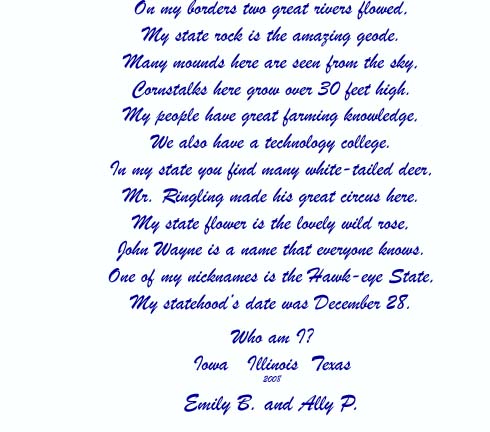 On my borders two great rivers flowed,
My state rock is the amazing geode.
Many mounds here are seen from the sky,
Cornstalks here grow over 30 feet high.
My people have great farming knowledge,
We also have a technology college.
In my state you find many white-tailed deer,
Mr. Ringling made his great circus here.
My state flower is the lovely wild rose,
John Wayne is a name that everyone knows.
One of my nicknames is the Hawk-eye State,
My statehood's date was December 28.
Who am I?
Iowa Illinois Texas
2008
Emily B. and Ally P.